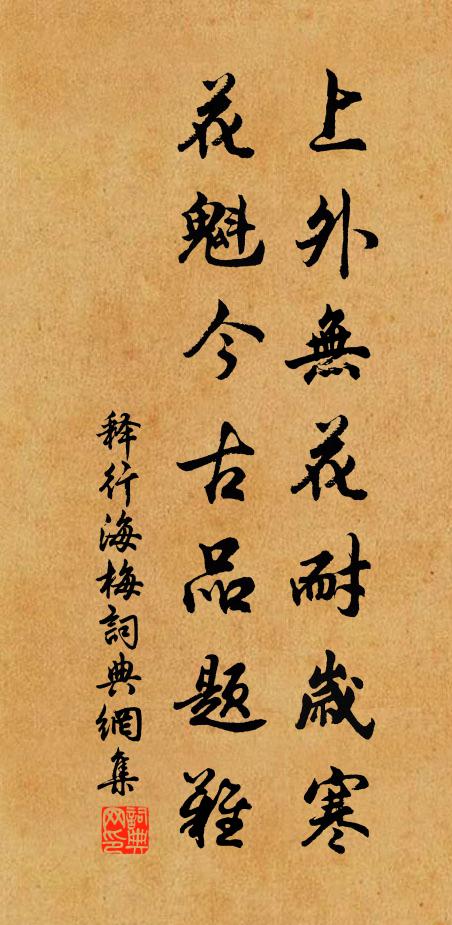 上外無花耐歲寒
花魁今古品题難
释行海梅詞典網集
詞典网印